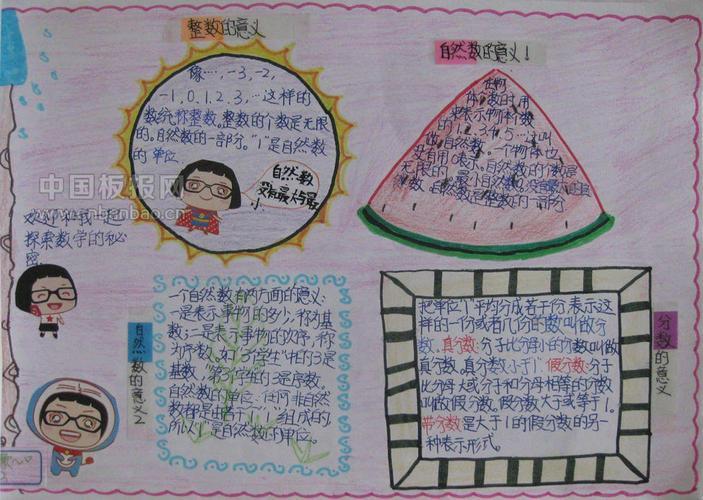 整数的意义
像…,-3,-2,
-1,0,1,2,3,…这样的
数统称整数。整数的个数是无限
的。自然数的一部分。"1"是自然数
的单位。
自然数
没有最大与最
小。
自然数的意义!
在物
体个数时,用
来表示物体个数
的1、2、3、4、5…叫
做自然数。一个物体也
没有用0表示。自然数的个数是
无限的。最小自然数
自然数是整数的一部分
中国板报网
欢迎和我一起
探索数学的秘
密
自然数的意义2
一个自然数有两方面的意义:
一是表示事物的多少,称为基
数;二是表示事物的次序,称
为序数。如:"3个学生"中的3是
基数,"第3个学生"的3是序数。
自然数的单位:任何非自然
数都是由若干个"1"组成的,
所以"1"是自然数的单位。
分数的意义
把单位"1"平均分成若干份,表示这
样的一份或者几份的数叫做分
数。真分数:分子比分母小的分数叫做
真分数。真分数小于1。假分数:分子
比分母大或分子和分母相等的分数
叫做假分数。假分数大于或等于1。
带分数是大于1的假分数的另一
种表示形式。